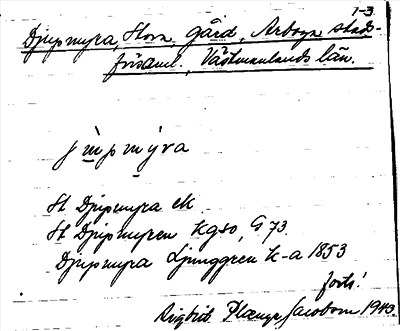 1-3.
Djupmyra, Stora, gård, Arboga stads-
församl., Västmanlands län.
jùpmýra
St Djupmyra ek
St Djupmyren kgso, G 73.
Djupmyra Ljunggren k-a 1853
forts!
Sigbrit Plænge Jacobson 1943.